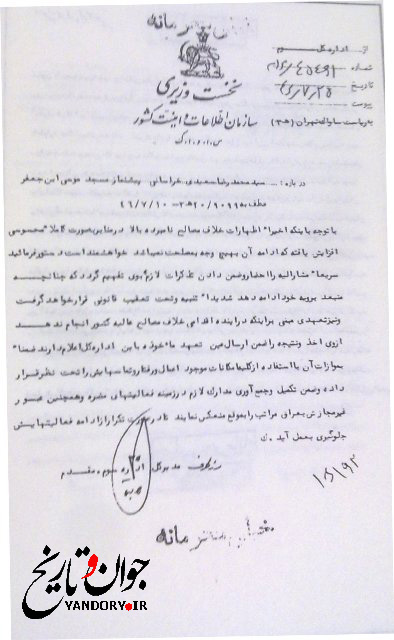 خیلی محرمانه
از اداره کل سوم
شماره
تاریخ
پیوست
نخست وزیری
سازمان اطلاعات و امنیت کشور
س.ا.و.ا.ک
به ریاست ساواک تهران (ه‍ ۳)
درباره : ... سید محمد رضا سعیدی خراسانی پیشنماز مسجد موسی ابن جعفر
عطف به ۲۰/۹۰۹۹ه‍۳ - ۴۶/۷/۱۰
با توجه باینکه اخیرا" اظهارات خلاف مصالح نامبرده بالا در منابر بصورت کاملا" محسوسی
افزایش یافته که ادامه آن بهیچ وجه بمصلحت نمیباشد خواهشمند است دستور فرمائید
سریعا" مشارالیه را احضار و ضمن دادن تذکرات لازم بوی تفهیم گردد که چنانچه
منبعد برویه خود ادامه دهد شدیدا" تنبیه و تحت تعقیب قانونی قرار خواهد گرفت
و نیز تعهدی مبنی بر اینکه در آینده اقدامی خلاف مصالح عالیه کشور انجام ندهد
از وی اخذ و نتیجه را ضمن ارسال عین تعهد ماخوذه باین اداره کل اعلام دارند ضمنا"
بموازات آن با استفاده از کلیه امکانات موجود اعمال و رفتار و تماسهایش را تحت نظر قرار
داده و ضمن تکمیل و جمع آوری مدارک لازم در زمینه فعالیتهای مضره و همچنین عبور
غیر مجاز نامبرده مراتب را بموقع منعکس نمایند تا در صورت تکرار از ادامه فعالیتهایش
جلوگیری بعمل آید . ک
مدیر کل اداره سوم . مقدم
خیلی محرمانه
جوان و تاریخ
YANDORY.IR